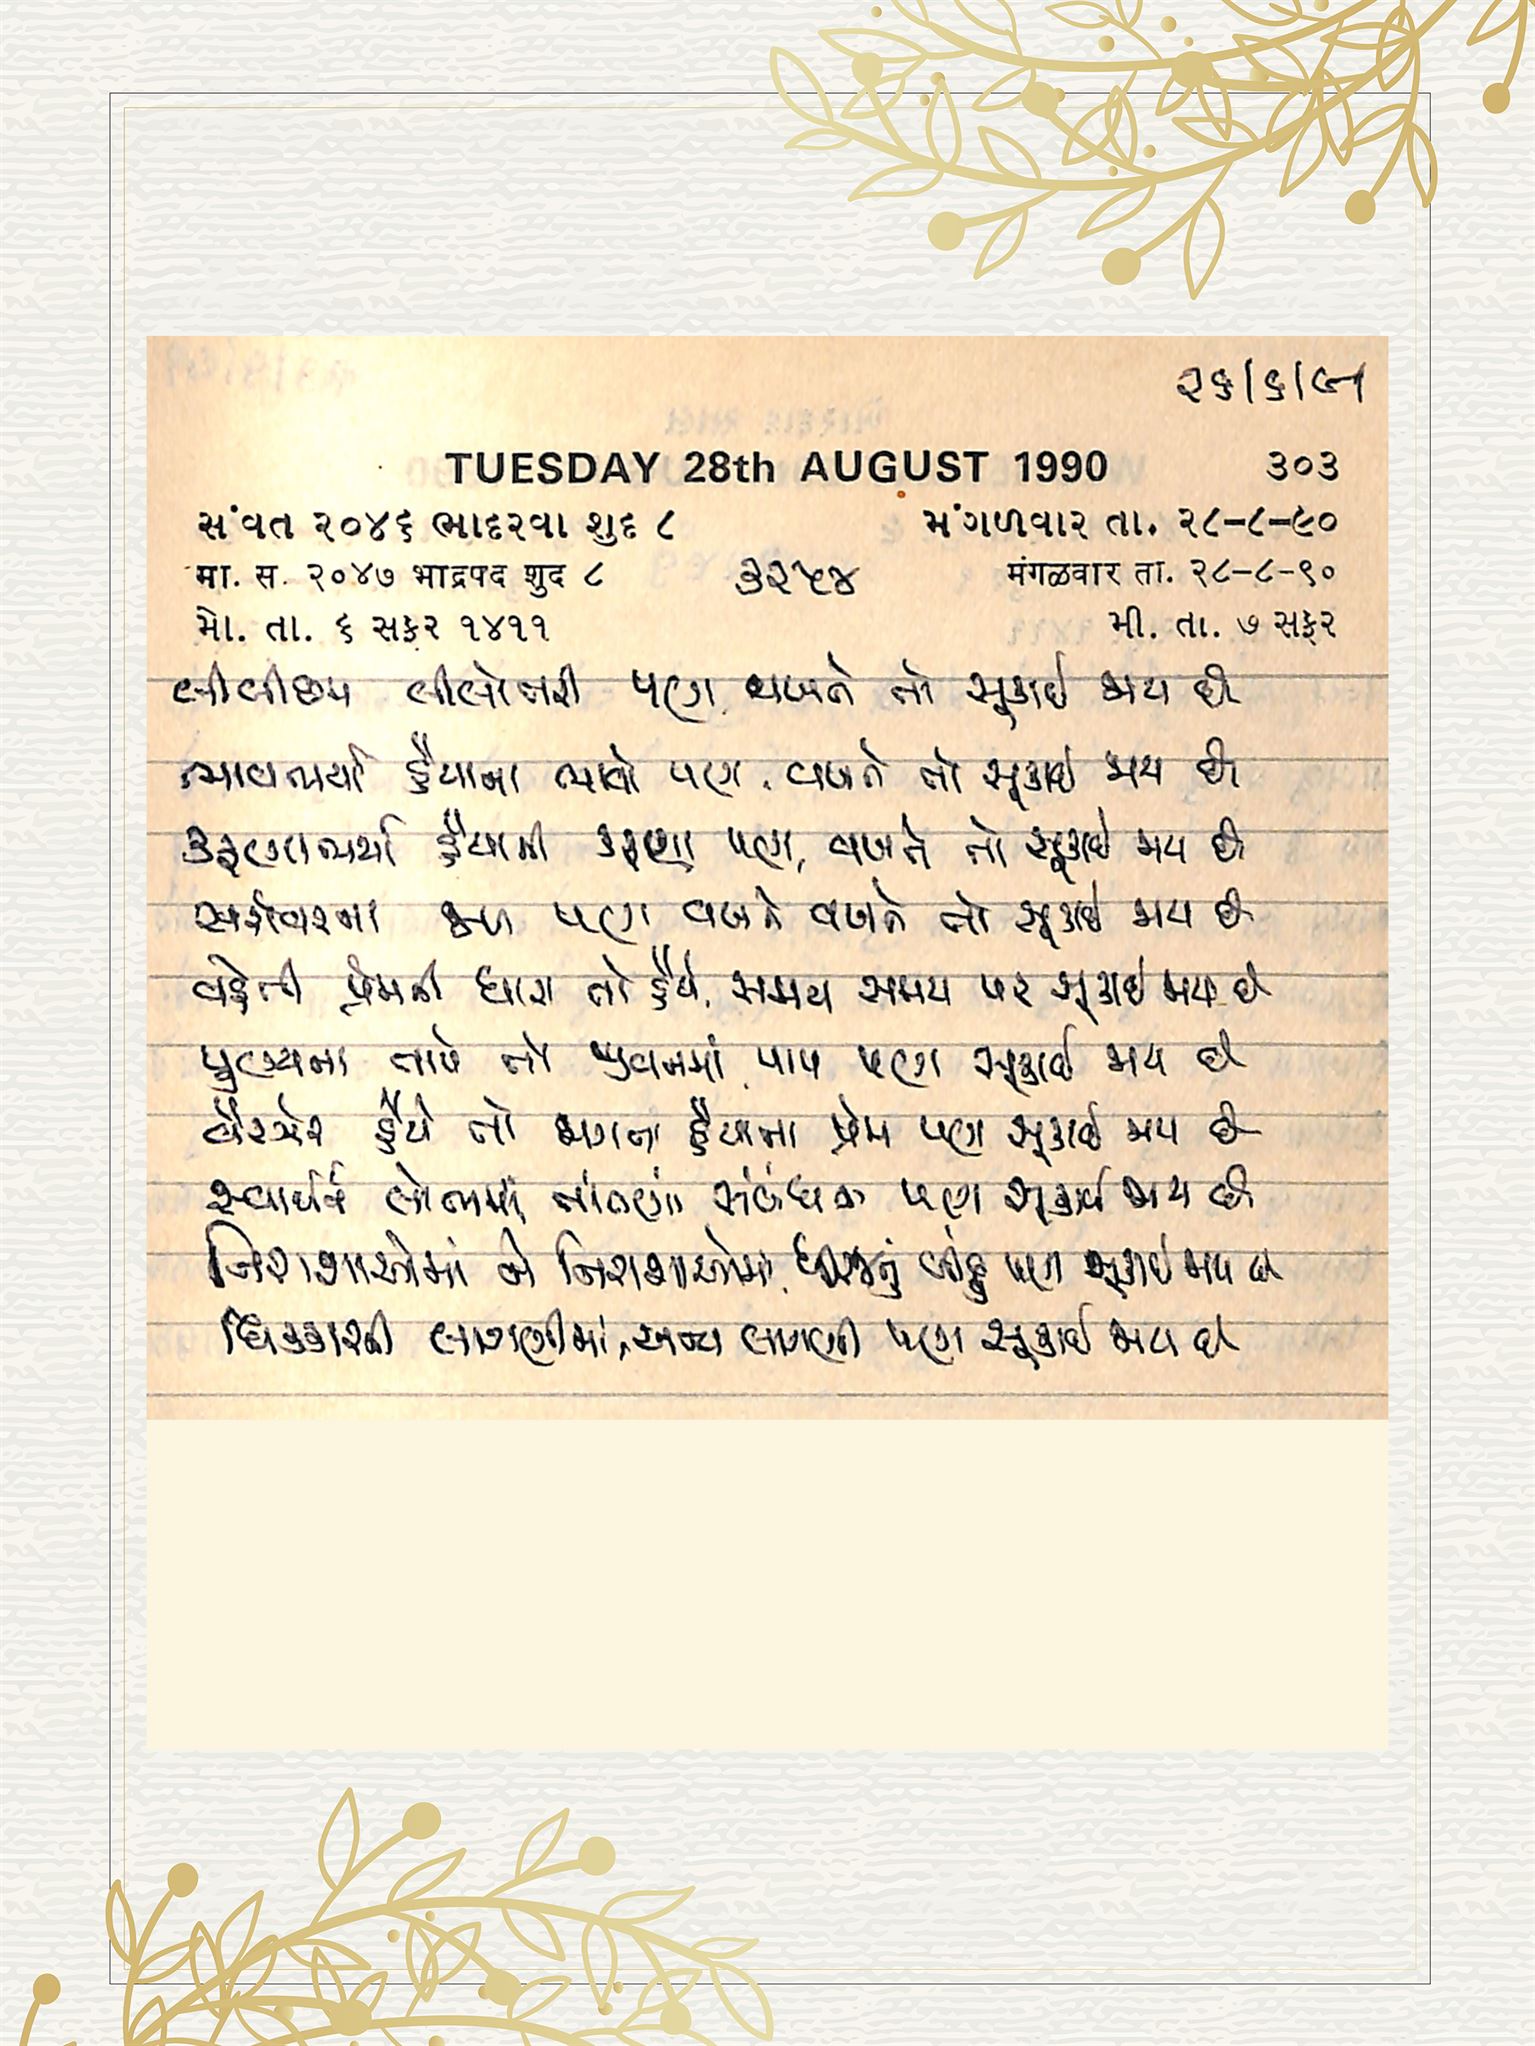 ૨૬/૬/૯૧
TUESDAY 28th AUGUST 1990 ૩૦૩
સંવત ૨૦૪૬ ભાદરવા શુદ ૮ મંગળવાર તા. ૨૮-૮-૯૦
मा. स. २०४७ भाद्रपद शुद ८ ૩૨૫૪ मंगळवार ता. २८-८-९०
મો. તા. ૬ સફર ૧૪૧૧ મી. તા. ૭ સફર
લીલીછમ લીલોતરી પણ વખતે તો સૂકાઈ જાય છે
ભાવભર્યા હૈયાના ભાવો પણ, વખતે તો સૂકાઈ જાય છે
કરૂણાભર્યા હૈયાની કરૂણા પણ, વખતે તો સૂકાઈ જાય છે
સરોવરના જળ પણ વખતે વખતે તો સૂકાઈ જાય છે
વહેતી પ્રેમની ધારા તો હૈયે, સમય સમય પર સૂકાઈ જાય છે
પુણ્યના તાપે તો જીવનમાં, પાપ પણ સૂકાઈ જાય છે
વૈરઝેર હૈયે તો જાગતા હૈયાના પ્રેમ પણ સૂકાઈ જાય છે
સ્વાર્થને લોભમાં, તાંતણા સંબંધના પણ સૂકાઈ જાય છે
નિરાશાઓમાં ને નિરાશાઓમાં, ધીરજનું બિંદુ પણ સૂકાઈ જાય છે
ધિક્કારની લાગણીમાં, અન્ય લાગણી પણ સૂકાઈ જાય છે